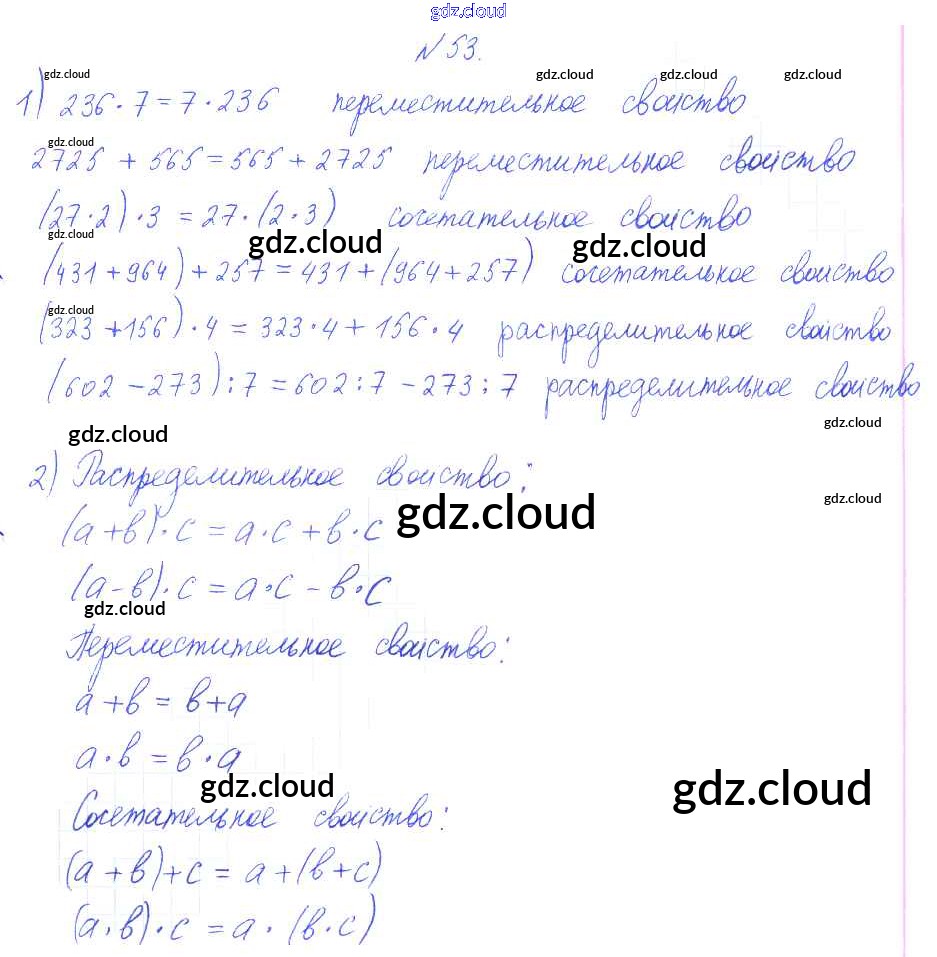 gdz.cloud
№ 53.
gdz.cloud gdz.cloud gdz.cloud gdz.cloud
1) 236 · 7 = 7 · 236 переместительное свойство
gdz.cloud
2725 + 565 = 565 + 2725 переместительное свойство
(27 · 2) · 3 = 27 · (2 · 3) сочетательное свойство
gdz.cloud gdz.cloud gdz.cloud
(431 + 964) + 257 = 431 + (964 + 257) сочетательное свойство
gdz.cloud
(323 + 156) · 4 = 323 · 4 + 156 · 4 распределительное свойство
(602 - 273) : 7 = 602 : 7 - 273 : 7 распределительное свойство
gdz.cloud
gdz.cloud
2) Распределительное свойство:
gdz.cloud gdz.cloud
(a + b) · c = a · c + b · c
(a - b) · c = a · c - b · c
gdz.cloud
Переместительное свойство:
a + b = b + a
a · b = b · a
gdz.cloud gdz.cloud
Сочетательное свойство:
(a + b) + c = a + (b + c)
(a · b) · c = a · (b · c)